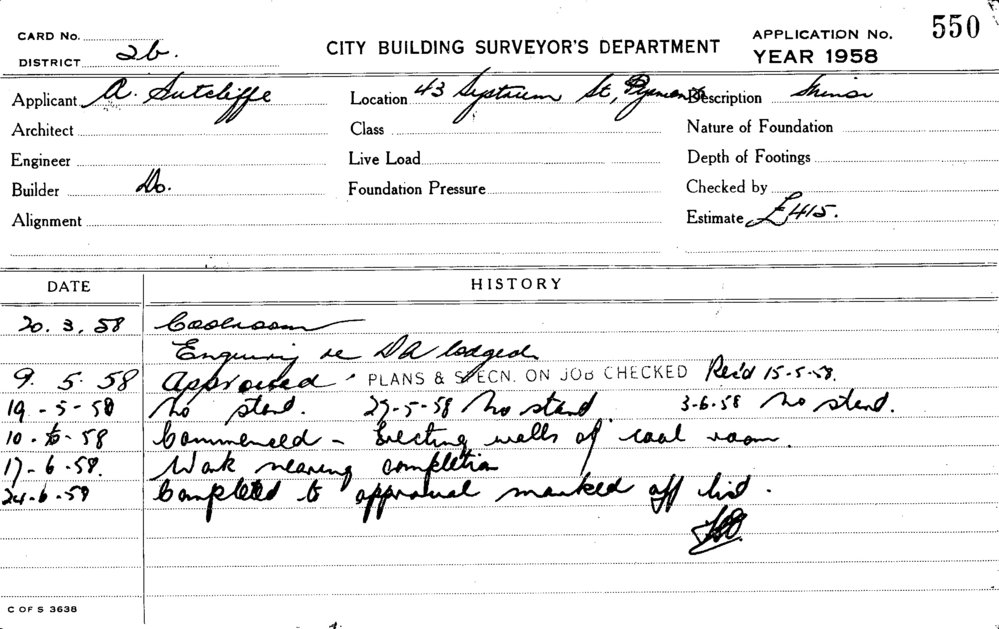 CARD No.
DISTRICT 2b.
CITY BUILDING SURVEYOR'S DEPARTMENT
APPLICATION No. 550
YEAR 1958
Applicant A. Sutcliffe Location 43 St, Description
Architect Class Nature of Foundation
Engineer Live Load Depth of Footings
Builder Do. Foundation Pressure Checked by
Alignment Estimate £415.
DATE HISTORY
20.3.58 Coolroom
Enquiry re DA lodged
9.5.58 Approved PLANS & SPECN. ON JOB CHECKED Rec'd 15-5-58.
19-5-58 No start. 27-5-58 No start 3-6-58 No start.
10-6-58 Commenced - Erecting walls of cool room.
17-6-58. Work nearing completion
24-6-58 Completed to approval marked off list.
C OF S 3638